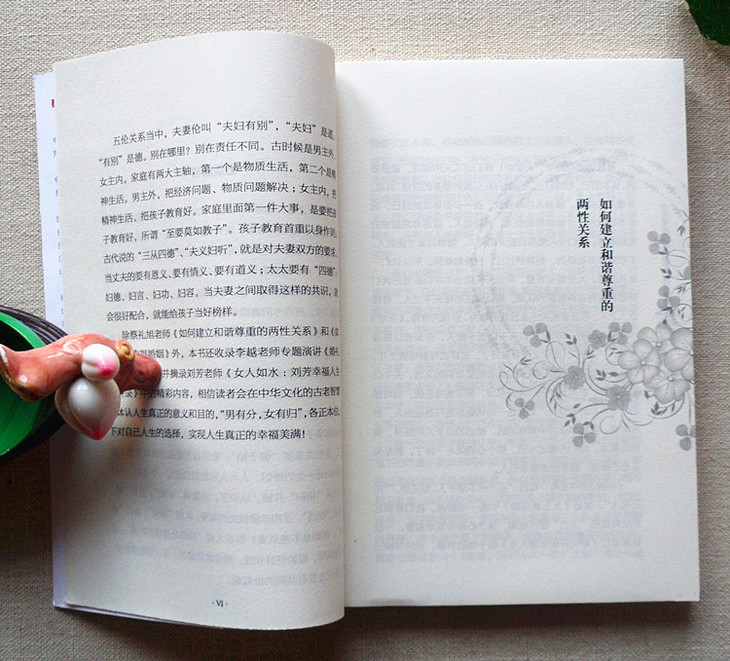 五伦关系当中，夫妻伦叫“夫妇有别”，“夫妇”是道，
“有别”是德。别在哪里？别在责任不同。古时候是男主外，
女主内。家庭有两大主轴，第一个是物质生活，第二个是精
神生活，男主外，把经济问题、物质问题解决；女主内，把
精神生活、把孩子教育好。家庭里面第一件大事，是要把孩
子教育好，所谓“至要莫如教子”。孩子教育首重以身作则，
古代说的“三从四德”、“夫义妇听”，就是对夫妻双方的要求。
当丈夫的要有恩义、要有情义、要有道义；太太要有“四德”：
妇德、妇言、妇功、妇容。当夫妻之间取得这样的共识，就
会很好配合，就能给孩子当好榜样。
除蔡礼旭老师《如何建立和谐尊重的两性关系》和《如
婚姻》外，本书还收录李越老师专题演讲《婚礼
并摘录刘芳老师《女人如水：刘芳幸福人生
录》中的精彩内容，相信读者会在中华文化的古老智慧
体认人生真正的意义和目的，“男有分，女有归”，各正本位，
下对自己人生的选择，实现人生真正的幸福美满！
· VI ·
如何建立和谐尊重的
两性关系